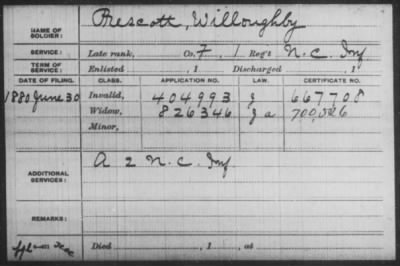 NAME OF SOLDIER: Prescott, Willoughby
SERVICE: Late rank, Co. F, 1 Reg't N.C. Inf
TERM OF SERVICE: Enlisted , 1 Discharged , 1
DATE OF FILING. CLASS. APPLICATION NO. LAW. CERTIFICATE NO.
1880 June 30 Invalid, 404993 J 667708
Widow, 826346 J a
Minor,
ADDITIONAL SERVICES: A 2 N.C. Inf
REMARKS:
Died , 1 , at